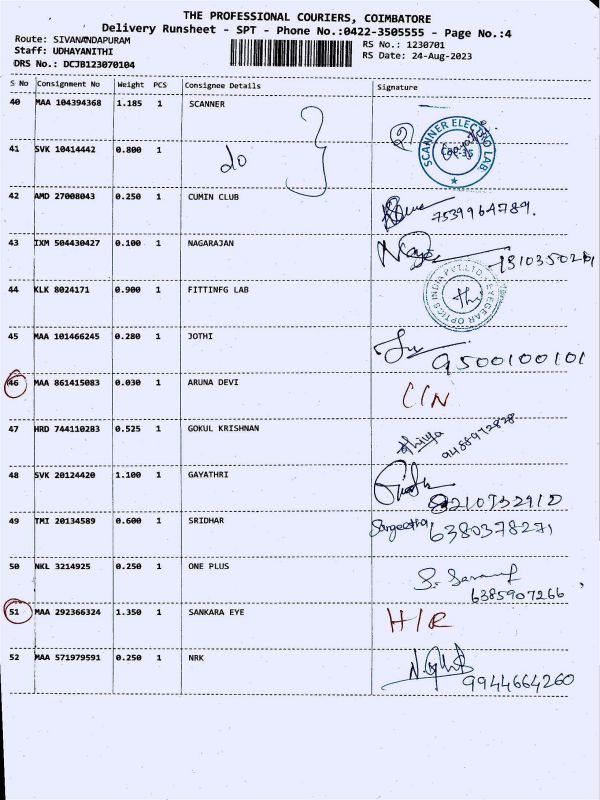 THE PROFESSIONAL COURIERS, COIMBATORE
Delivery Runsheet - SPT - Phone No.:0422-3505555 - Page No.:4
Route: SIVANANDAPURAM
Staff: UDHAYANITHI
DRS No.: DCJB123070104
RS No.: 1230701
RS Date: 24-Aug-2023
S No Consignment No Weight PCS Consignee Details Signature
40 MAA 104394368 1.185 1 SCANNER
SCANNER ELECTRO LAB
41 SVK 10414442 0.800 1 do
42 AMD 27008043 0.250 1 CUMIN CLUB 7539964789.
43 IXM 504430427 0.100 1 NAGARAJAN
44 KLK 8024171 0.900 1 FITTINFG LAB
EYEGEAR OPTICS INDIA PVT.LTD.
45 MAA 101466245 0.280 1 JOTHI 9500100101
46 MAA 861415083 0.030 1 ARUNA DEVI C/N
47 HRD 744110283 0.525 1 GOKUL KRISHNAN 9488972828
48 SVK 20124420 1.100 1 GAYATHRI
49 TMI 20134589 0.600 1 SRIDHAR Sangeetha 6380378271
50 NKL 3214925 0.250 1 ONE PLUS 6385907266
51 MAA 292366324 1.350 1 SANKARA EYE H/R
52 MAA 571979591 0.250 1 NRK 9944664260